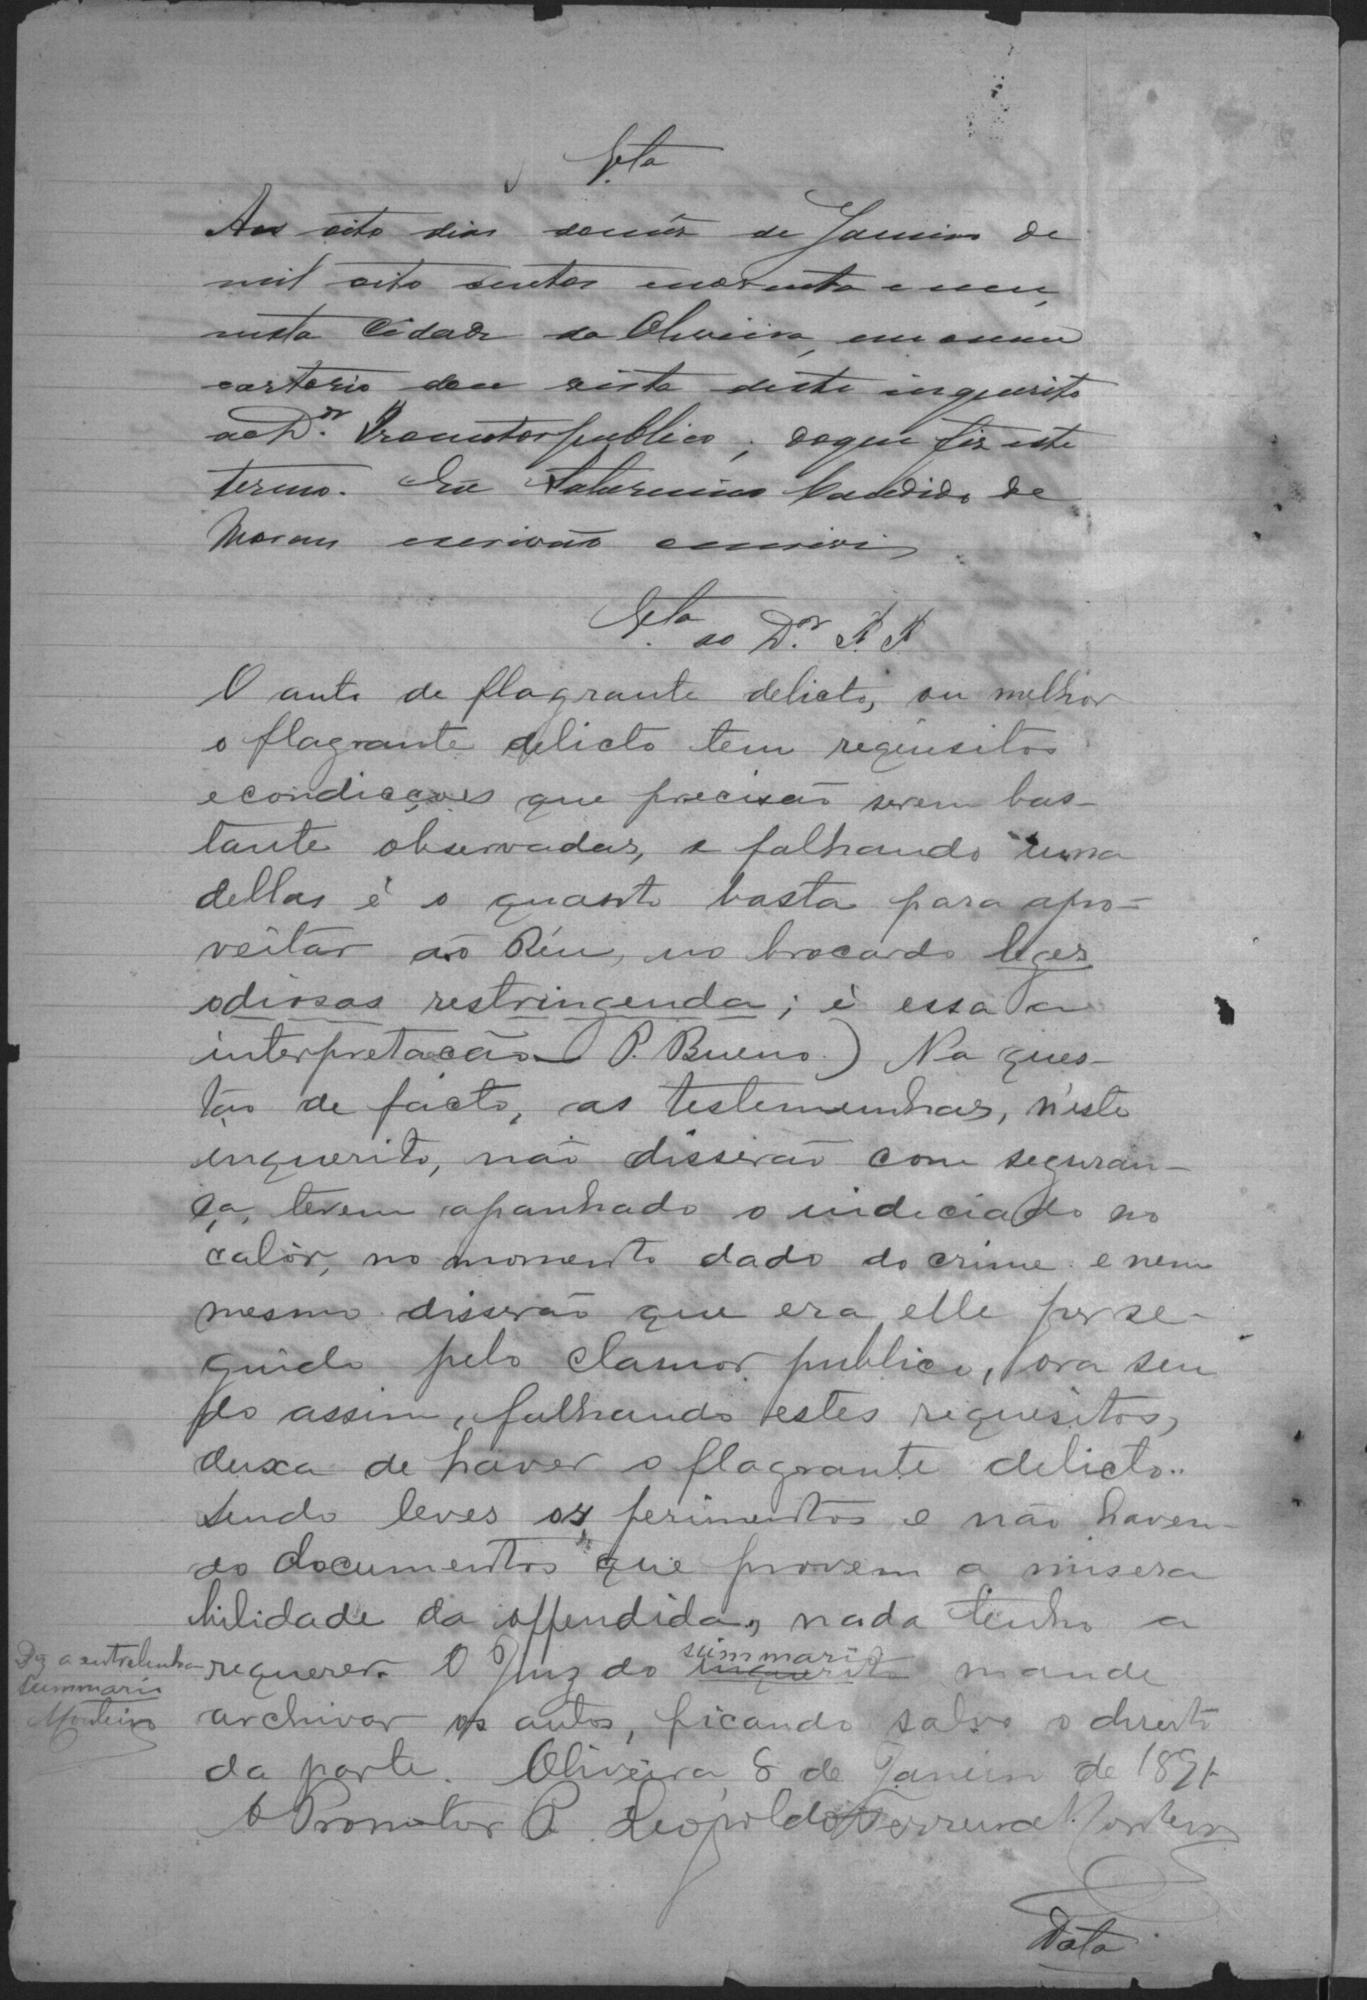 Vta
Aos oito dias do mês de Janeiro de
mil oito sentos e noventa e um,
nesta Cidade da Oliveira, em o meu
cartorio dou vista deste inquerito
ao Dr. Promotor publico; do que fiz este
termo. Eu Saturnino Candido de
Moraes escrivão escrevi
Vta ao Dr. P P
O auto de flagrante delicto, ou melhor
o flagrante delicto tem requisitos
e condicções que precisão serem bas-
tante observadas, e falhando uma
dellas é o quanto basta para apro-
veitar ao Réu, no brocardo leges
odiosas restringenda; é essa a
interpretacão (P. Bueno.) Na ques-
tão de facto, as testemunhas, n'este
inquerito, não disserão com seguran-
ça, terem apanhado o indiciado no
calôr, no momento dado do crime e nem
mesmo disserão que era elle perse-
guido pelo clamor publico, ora sen
do assim, falhando estes requisitos,
deixa de haver o flagrante delicto..
Sendo leves os ferimentos e não haven-
do documentos que provem a misera
bilidade da offendida, nada tenho a
requerer. O Juiz do inquerito summario mande
Dg a entrelinha
summario
Monteiro
archivar os autos, ficando salvo o direito
da parte. Oliveira, 8 de Janeiro de 1891
O Promotor P. Leopoldo Ferreira Monteiro
Data